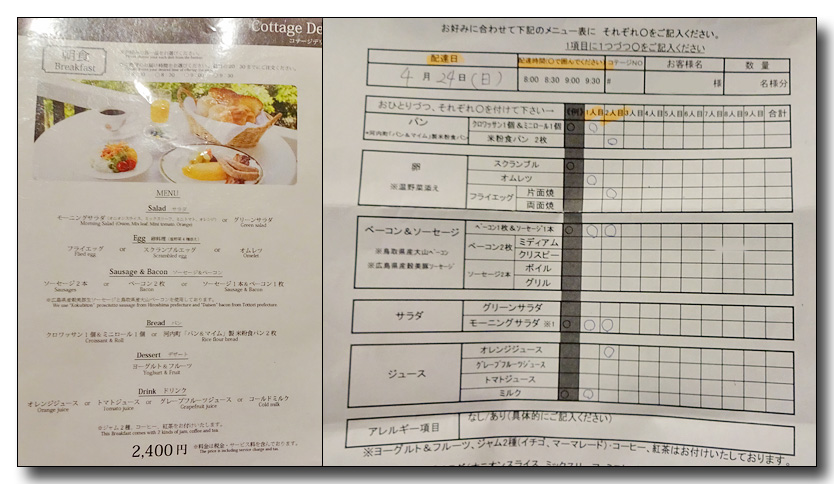 Cottage De
コテージデリ
朝食
Breakfast
MENU
Salad サラダ
モーニングサラダ or グリーンサラダ
Green salad
Egg 卵料理
フライエッグ or スクランブルエッグ or オムレツ
Fried egg Scrambled egg Omelet
Sausage & Bacon ソーセージ&ベーコン
ソーセージ2本 or ベーコン2枚 or ソーセージ1本&ベーコン1枚
Sausages Bacon Sausage & Bacon
Bread パン
クロワッサン1個&ミニロール1個 or 河内町「パン&マイム」製 米粉食パン2枚
Croissant & Roll Rice flour bread
Dessert デザート
ヨーグルト&フルーツ
Yoghurt & Fruit
Drink ドリンク
オレンジジュース or トマトジュース or グレープフルーツジュース or コールドミルク
Orange juice Tomato juice Grapefruit juice Cold milk
※ジャム2種、コーヒー、紅茶をお付けいたします。
This Breakfast comes with 2 kinds of jam, coffee and tea.
2,400円 ※料金は税金・サービス料を含んでおります。
The price is including service charge and tax.
お好みに合わせて下記のメニュー表に それぞれ〇をご記入ください。
1項目に1つづつ〇をご記入ください
配達日 配達時間(〇で囲んでください) コテージNO お客様名 数量
4月24日(日) 8:00 8:30 9:00 9:30 8 様 名様分
おひとりづつ、それぞれ〇を付けて下さい→ 《例》 1人目 2人目 3人目 4人目 5人目 6人目 7人目 8人目 9人目 合計
パン クロワッサン1個&ミニロール1個
※河内町「パン&マイム」製米粉食パン 米粉食パン 2枚
卵 スクランブル
※温野菜添え オムレツ
フライエッグ 片面焼
両面焼
ベーコン&ソーセージ ベーコン1枚&ソーセージ1本
※鳥取県産大山ベーコン ベーコン2枚 ミディアム
クリスピー
※広島県産穀美豚ソーセージ ソーセージ2本 ボイル
グリル
サラダ グリーンサラダ
モーニングサラダ ※1
ジュース オレンジジュース
グレープフルーツジュース
トマトジュース
ミルク
アレルギー項目 なし/あり(具体的にご記入ください)
※ヨーグルト&フルーツ、ジャム2種(イチゴ、マーマレード)・コーヒー、紅茶はお付けいたしております。